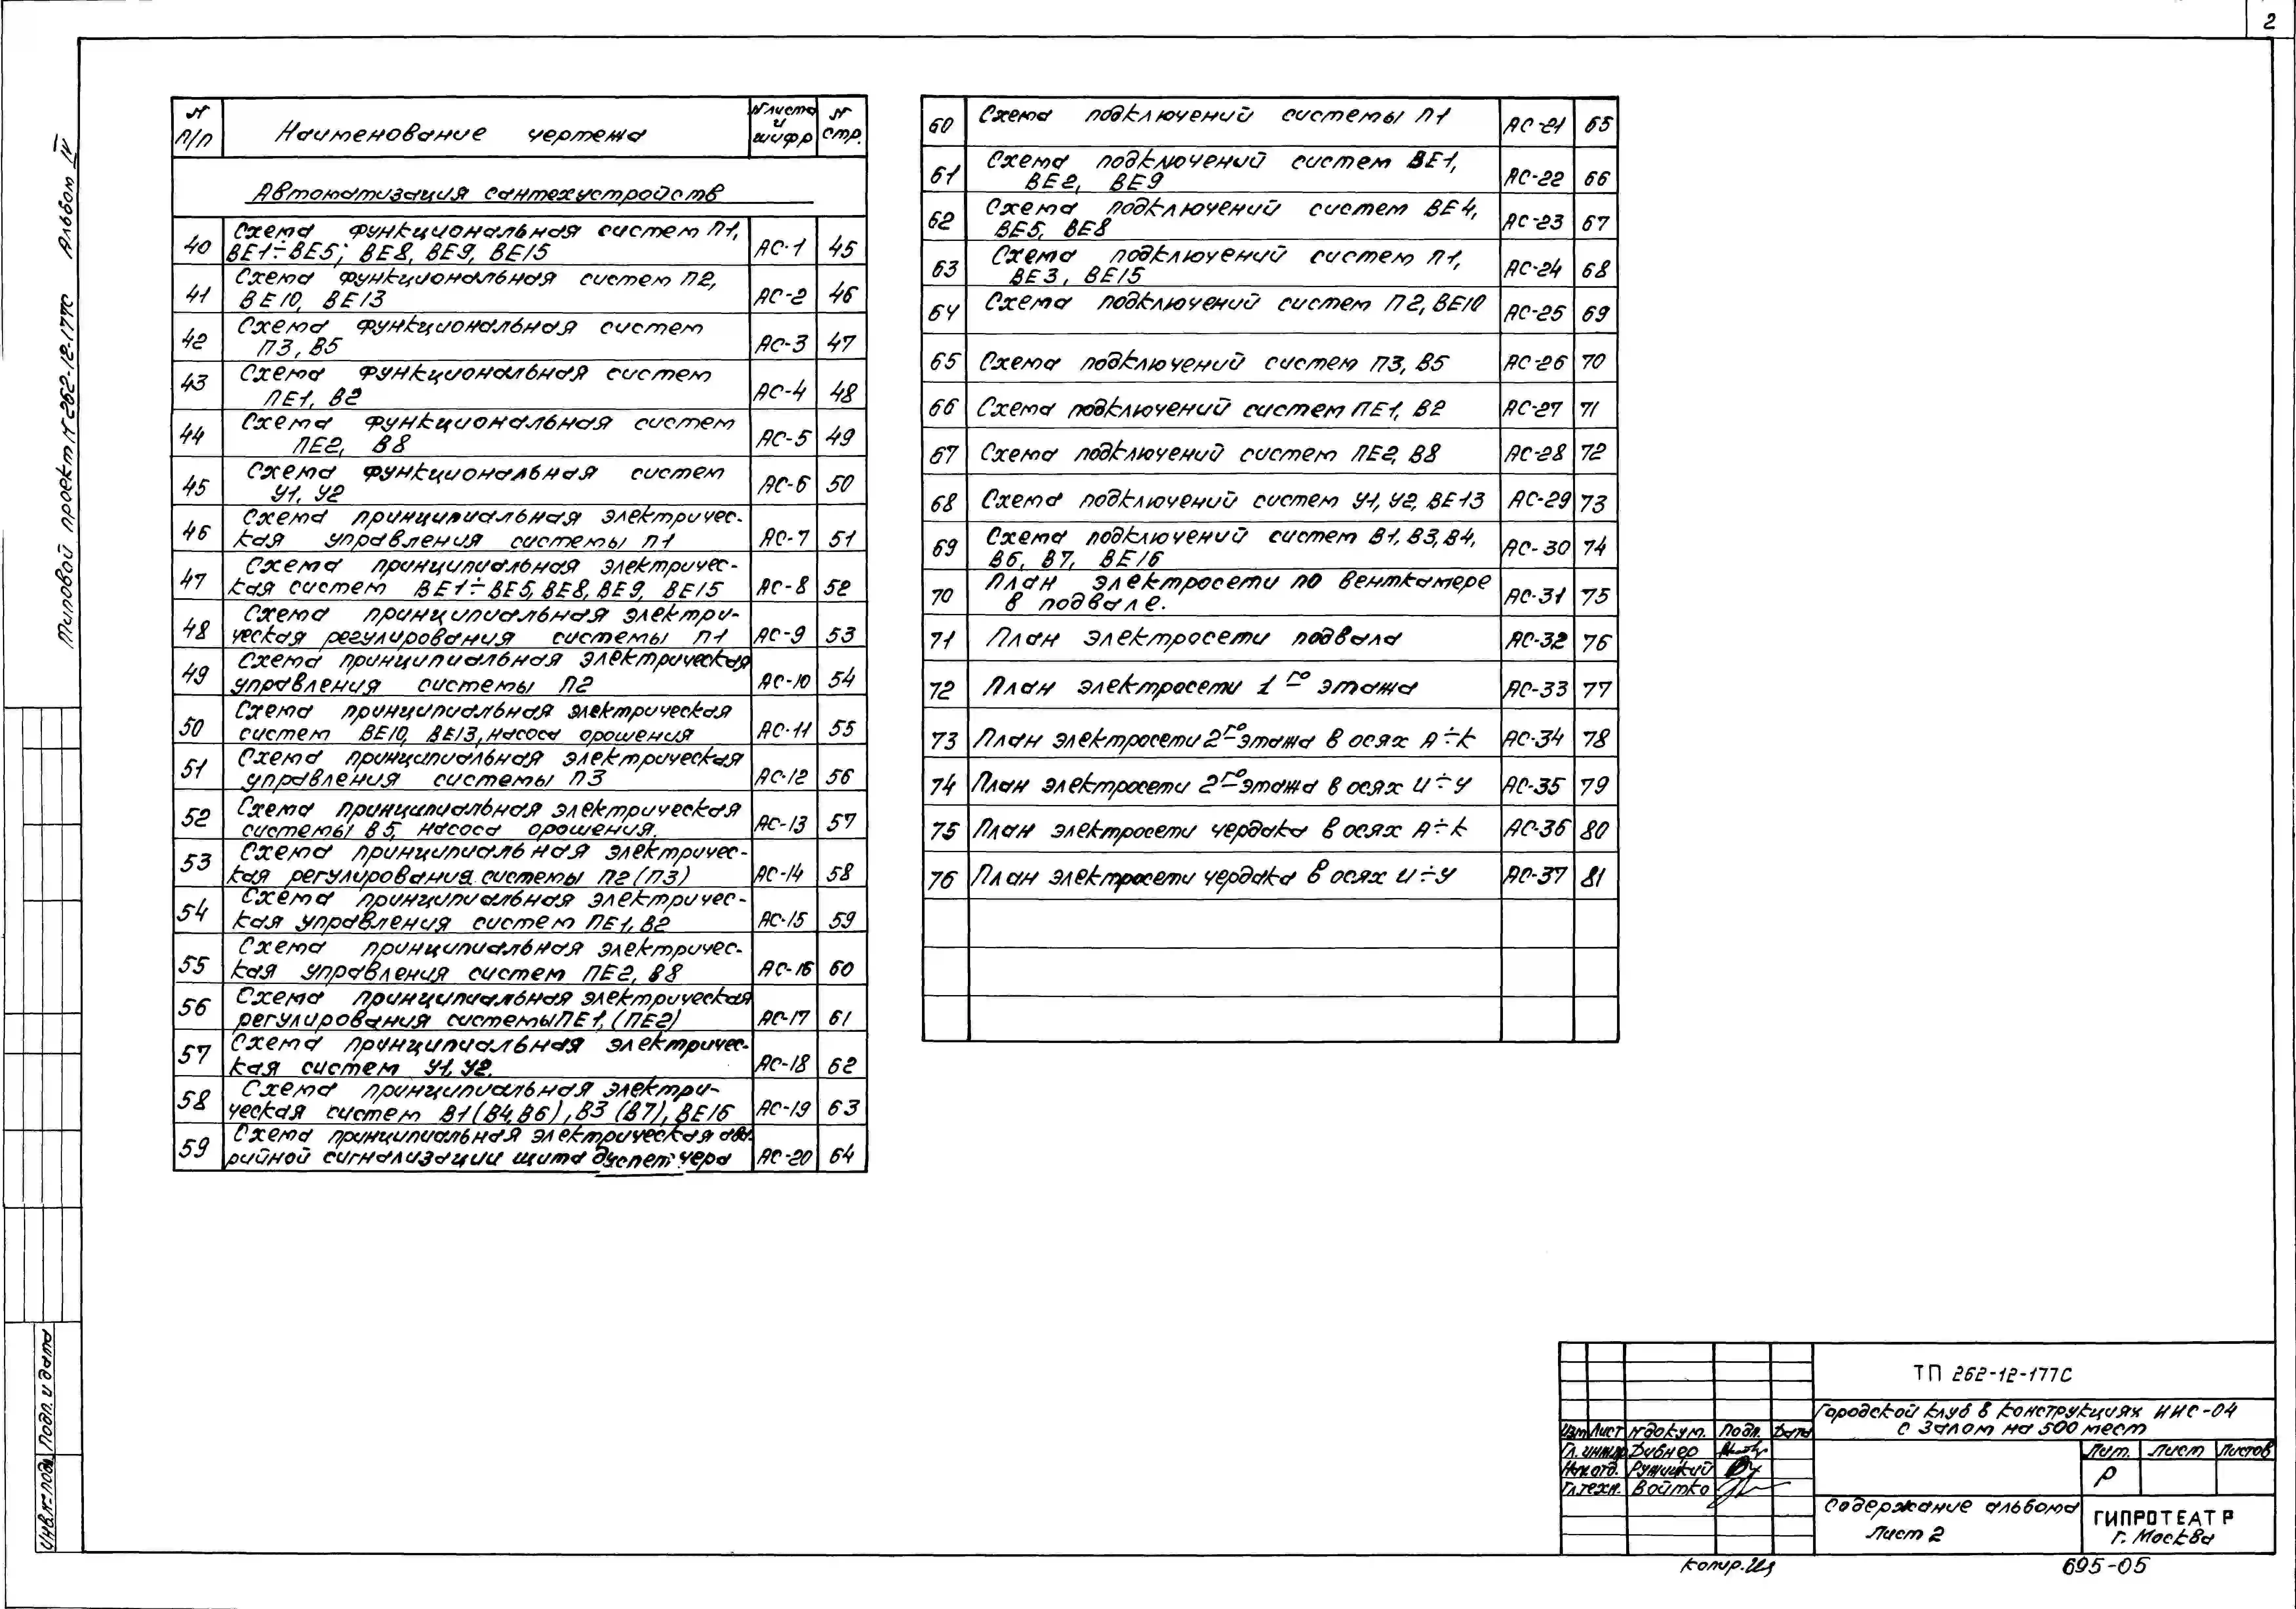 2
Типовой проект N 262-12-177С Альбом IV
N п/п Наименование чертежа N листа и шифр N стр.
Автоматизация сантехустройств
40 Схема функциональная систем П1, АС-1 45
ВЕ1÷ВЕ5; ВЕ8, ВЕ9, ВЕ15
41 Схема функциональная систем П2, АС-2 46
ВЕ10, ВЕ13
42 Схема функциональная систем АС-3 47
П3, В5
43 Схема функциональная систем АС-4 48
ПЕ1, В2
44 Схема функциональная систем АС-5 49
ПЕ2, В8
45 Схема функциональная систем АС-6 50
У1, У2
46 Схема принципиальная электричес- АС-7 51
кая управления системы П1
47 Схема принципиальная электричес- АС-8 52
кая систем ВЕ1÷ВЕ5, ВЕ8, ВЕ9, ВЕ15
48 Схема принципиальная электри- АС-9 53
ческая регулирования системы П1
49 Схема принципиальная электрическая АС-10 54
управления системы П2
50 Схема принципиальная электрическая АС-11 55
систем ВЕ10, ВЕ13, насоса орошения
51 Схема принципиальная электрическая АС-12 56
управления системы П3
52 Схема принципиальная электрическая АС-13 57
системы В5, насоса орошения.
53 Схема принципиальная электричес- АС-14 58
кая регулирования системы П2 (П3)
54 Схема принципиальная электричес- АС-15 59
кая управления систем ПЕ1, В2
55 Схема принципиальная электричес- АС-16 60
кая управления систем ПЕ2, В8
56 Схема принципиальная электрическая АС-17 61
регулирования системы ПЕ1, (ПЕ2)
57 Схема принципиальная электричес- АС-18 62
кая систем У1, У2.
58 Схема принципиальная электри- АС-19 63
ческая систем В1 (В4, В6), В3 (В7), ВЕ16
59 Схема принципиальная электрическая ава- АС-20 64
рийной сигнализации щита диспетчера
60 Схема подключений системы П1 АС-21 65
61 Схема подключений систем ВЕ1, АС-22 66
ВЕ2, ВЕ9
62 Схема подключений систем ВЕ4, АС-23 67
ВЕ5, ВЕ8
63 Схема подключений систем П1, АС-24 68
ВЕ3, ВЕ15
64 Схема подключений систем П2, ВЕ10 АС-25 69
65 Схема подключений систем П3, В5 АС-26 70
66 Схема подключений систем ПЕ1, В2 АС-27 71
67 Схема подключений систем ПЕ2, В8 АС-28 72
68 Схема подключений систем У1, У2, ВЕ13 АС-29 73
69 Схема подключений систем В1, В3, В4, АС-30 74
В6, В7, ВЕ16
70 План электросети по венткамере АС-31 75
в подвале.
71 План электросети подвала АС-32 76
72 План электросети 1го этажа АС-33 77
73 План электросети 2го этажа в осях А÷К АС-34 78
74 План электросети 2го этажа в осях И÷У АС-35 79
75 План электросети чердака в осях А÷К АС-36 80
76 План электросети чердака в осях И÷У АС-37 81
Инв. № подл. Подп. и дата
ТП 262-12-177С
Городской клуб в конструкциях ИИС-04
с залом на 500 мест
Изм Лист N докум. Подп. Дата
Гл. инж.пр Дибнер
Нач. отд. Ружицкий
Гл. техн. Войтко
Лит. Лист Листов
Р
Содержание альбома
Лист 2
ГИПРОТЕАТР
г. Москва
Копир.
695-05